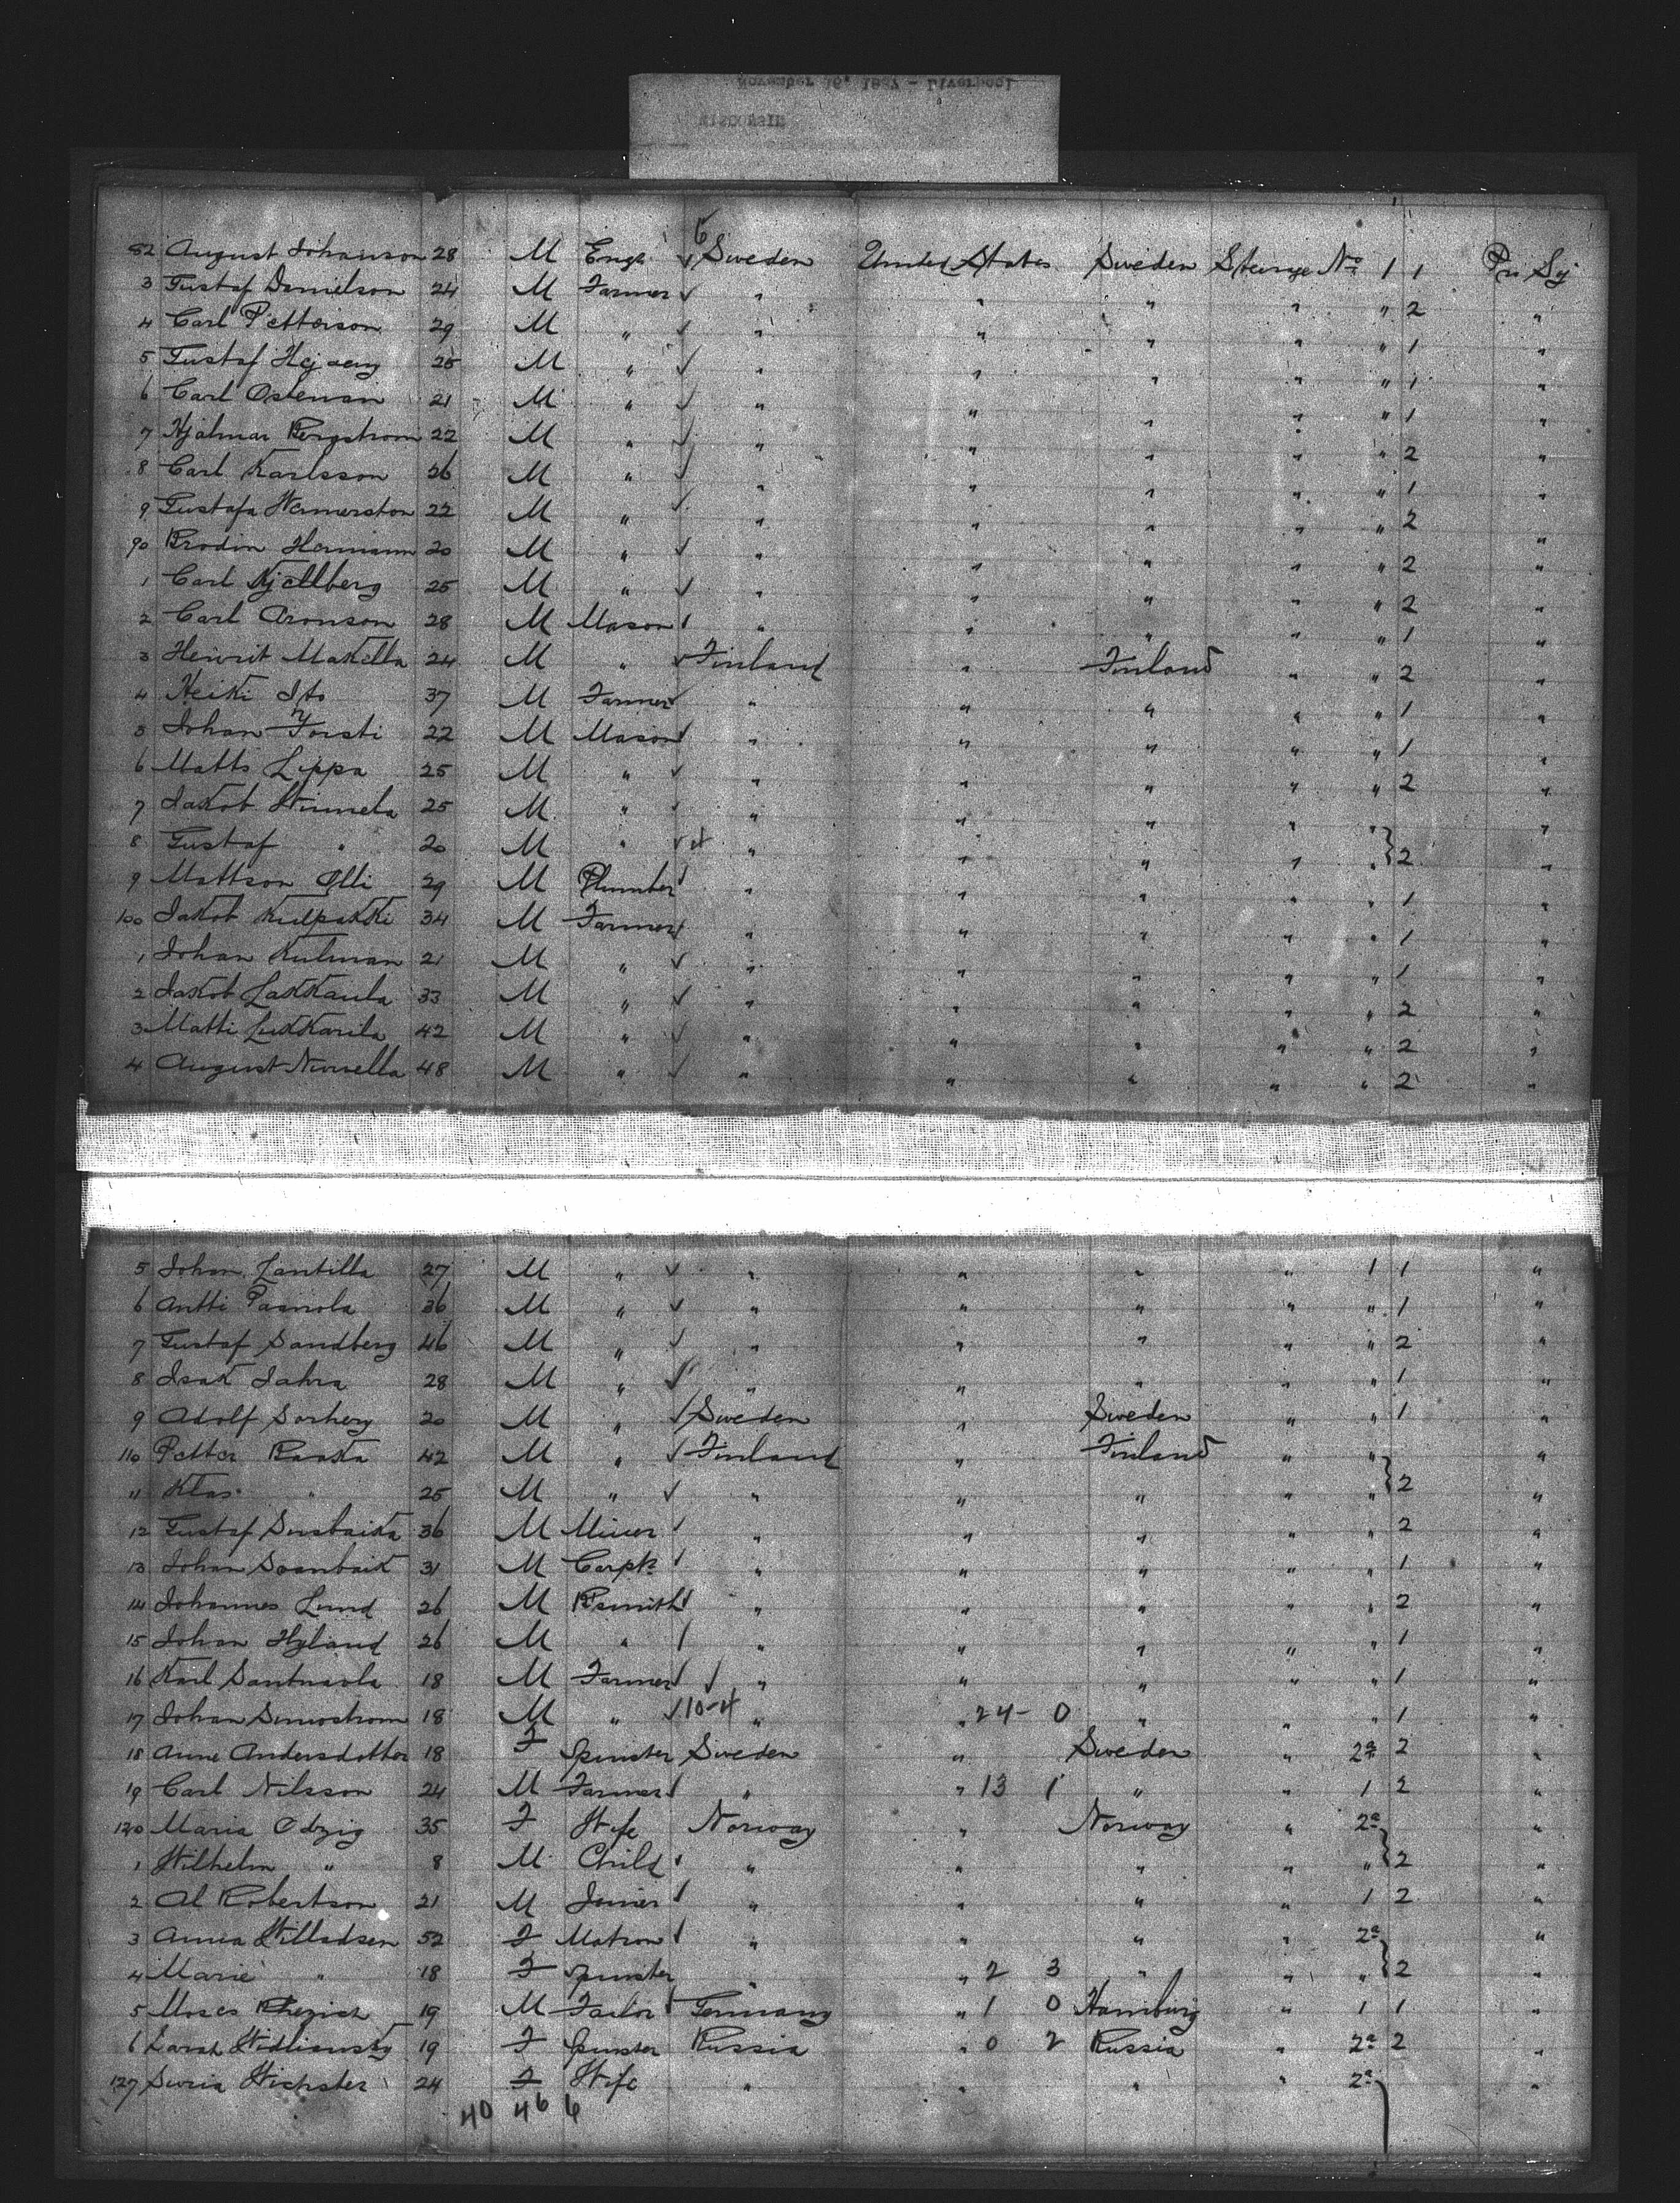 82 August Johanson 28 M Engr Sweden United States Sweden Steerage No 1 1 Pr Sj
3 Gustaf Danielson 24 M Farmer " " " " " 2 "
4 Carl Petterson 29 M " " " " " " 1 "
5 Gustaf 25 M " " " " " " 1 "
6 Carl Osterman 21 M " " " " " " 1 "
7 Hjalmar Bergstrom 22 M " " " " " " 2 "
8 Carl Karlsson 26 M " " " " " " 1 "
9 Gustafa 22 M " " " " " " 2 "
90 Brodin Hermann 20 M " " " " " " 2 "
1 Carl Kjellberg 25 M " " " " " " 2 "
2 Carl Aronson 28 M Mason " " " " " 1 "
3 Heinrit Makella 24 M " Finland " Finland " " 2 "
4 Heiki Ito 37 M Farmer " " " " " 1 "
5 Johan 22 M Mason " " " " " 1 "
6 Matts Lippa 25 M " " " " " " 2 "
7 Jakob 25 M " " " " " "
8 Gustaf " 20 M " 4 " " " " " 2 "
9 Mattson Olli 29 M Plumber " " " " " 1 "
100 Jakob Kulpakki 34 M Farmer " " " " " 1 "
1 Johan Kulman 21 M " " " " " " 1 "
2 Jakob Lakkaula 33 M " " " " " " 2 "
3 Matti Lukkarila 42 M " " " " " " 2 "
4 August 48 M " " " " " " 2 "
5 Johan Lantilla 27 M " " " " " 1 1 "
6 Antti 36 M " " " " " " 1 "
7 Gustaf Sandberg 46 M " " " " " " 2 "
8 Isak 28 M " " " " " " 1 "
9 Adolf 20 M " Sweden " Sweden " " 1 "
110 Petter Raaka 42 M " Finland " Finland " " "
11 Klas " 25 M " " " " " " 2 "
12 Gustaf 36 M Miner " " " " " 2 "
13 Johan 31 M Carptr " " " " " 1 "
14 Johannes Lund 26 M Bsmith " " " " " 2 "
15 Johan Hyland 26 M " " " " " " 1 "
16 Karl 18 M Farmer " " " " " 1 "
17 Johan 18 M " 10-4 " " 24 - 0 " " " 1 "
18 Anne Andersdotter 18 F Spinster Sweden " Sweden " 2a 2 "
19 Carl Nilsson 24 M Farmer " " 13 1 " " 1 2 "
120 Maria 35 F Wife Norway " Norway " 2a "
1 Wilhelm " 8 M Child " " " " " 2 "
2 Al Robertson 21 M Joiner " " " " 1 2 "
3 Anna Willadsen 52 F Matron " " " " 2a "
4 Marie " 18 F Spinster " " 2 3 " " " 2 "
5 Moses 19 M Tailor Germany " 1 0 Hamburg " 1 1 "
6 Sarah 19 F Spinster Russia " 0 2 Russia " 2a 2 "
127 24 F Wife " " " " 2a "
40 46 6